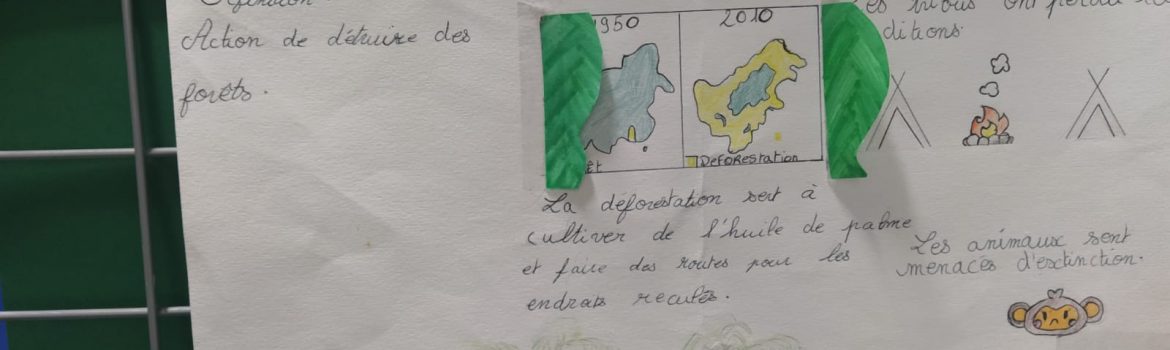 Définition:
Action de détruire des
forêts.
1950
2010
DéFORestation
La déforestation sert à
cultiver de l'huile de palme
et faire des routes pour les
endrats reculés.
ont perdu
ditions.
Les animaux sont
menacés d'extinction.